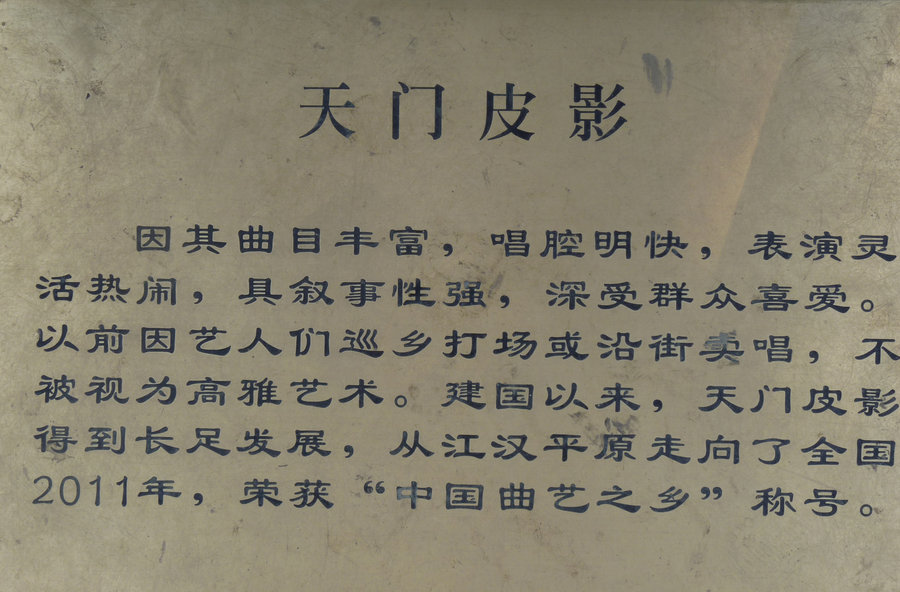 天门皮影
因其曲目丰富，唱腔明快，表演灵
活热闹，具叙事性强，深受群众喜爱。
以前因艺人们巡乡打场或沿街卖唱，不
被视为高雅艺术。建国以来，天门皮影
得到长足发展，从江汉平原走向了全国
2011年，荣获“中国曲艺之乡”称号。